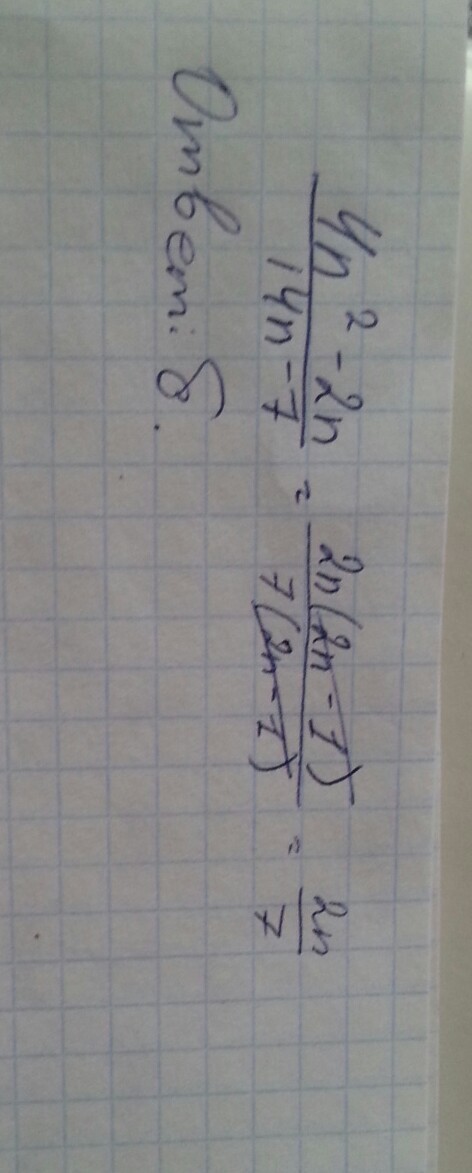 (4n² - 2n)/(14n - 7) = 2n(2n - 1)/7(2n - 1) = 2n/7
Ответ: б.